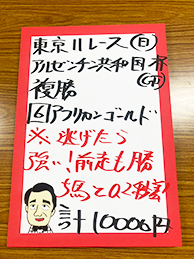 東京11レース(日)
アルゼンチン共和国杯
(GⅡ)
複勝
6アフリカンゴールド
※逃げたら
強い!前走も勝
ち馬と0.2秒差
計10000円